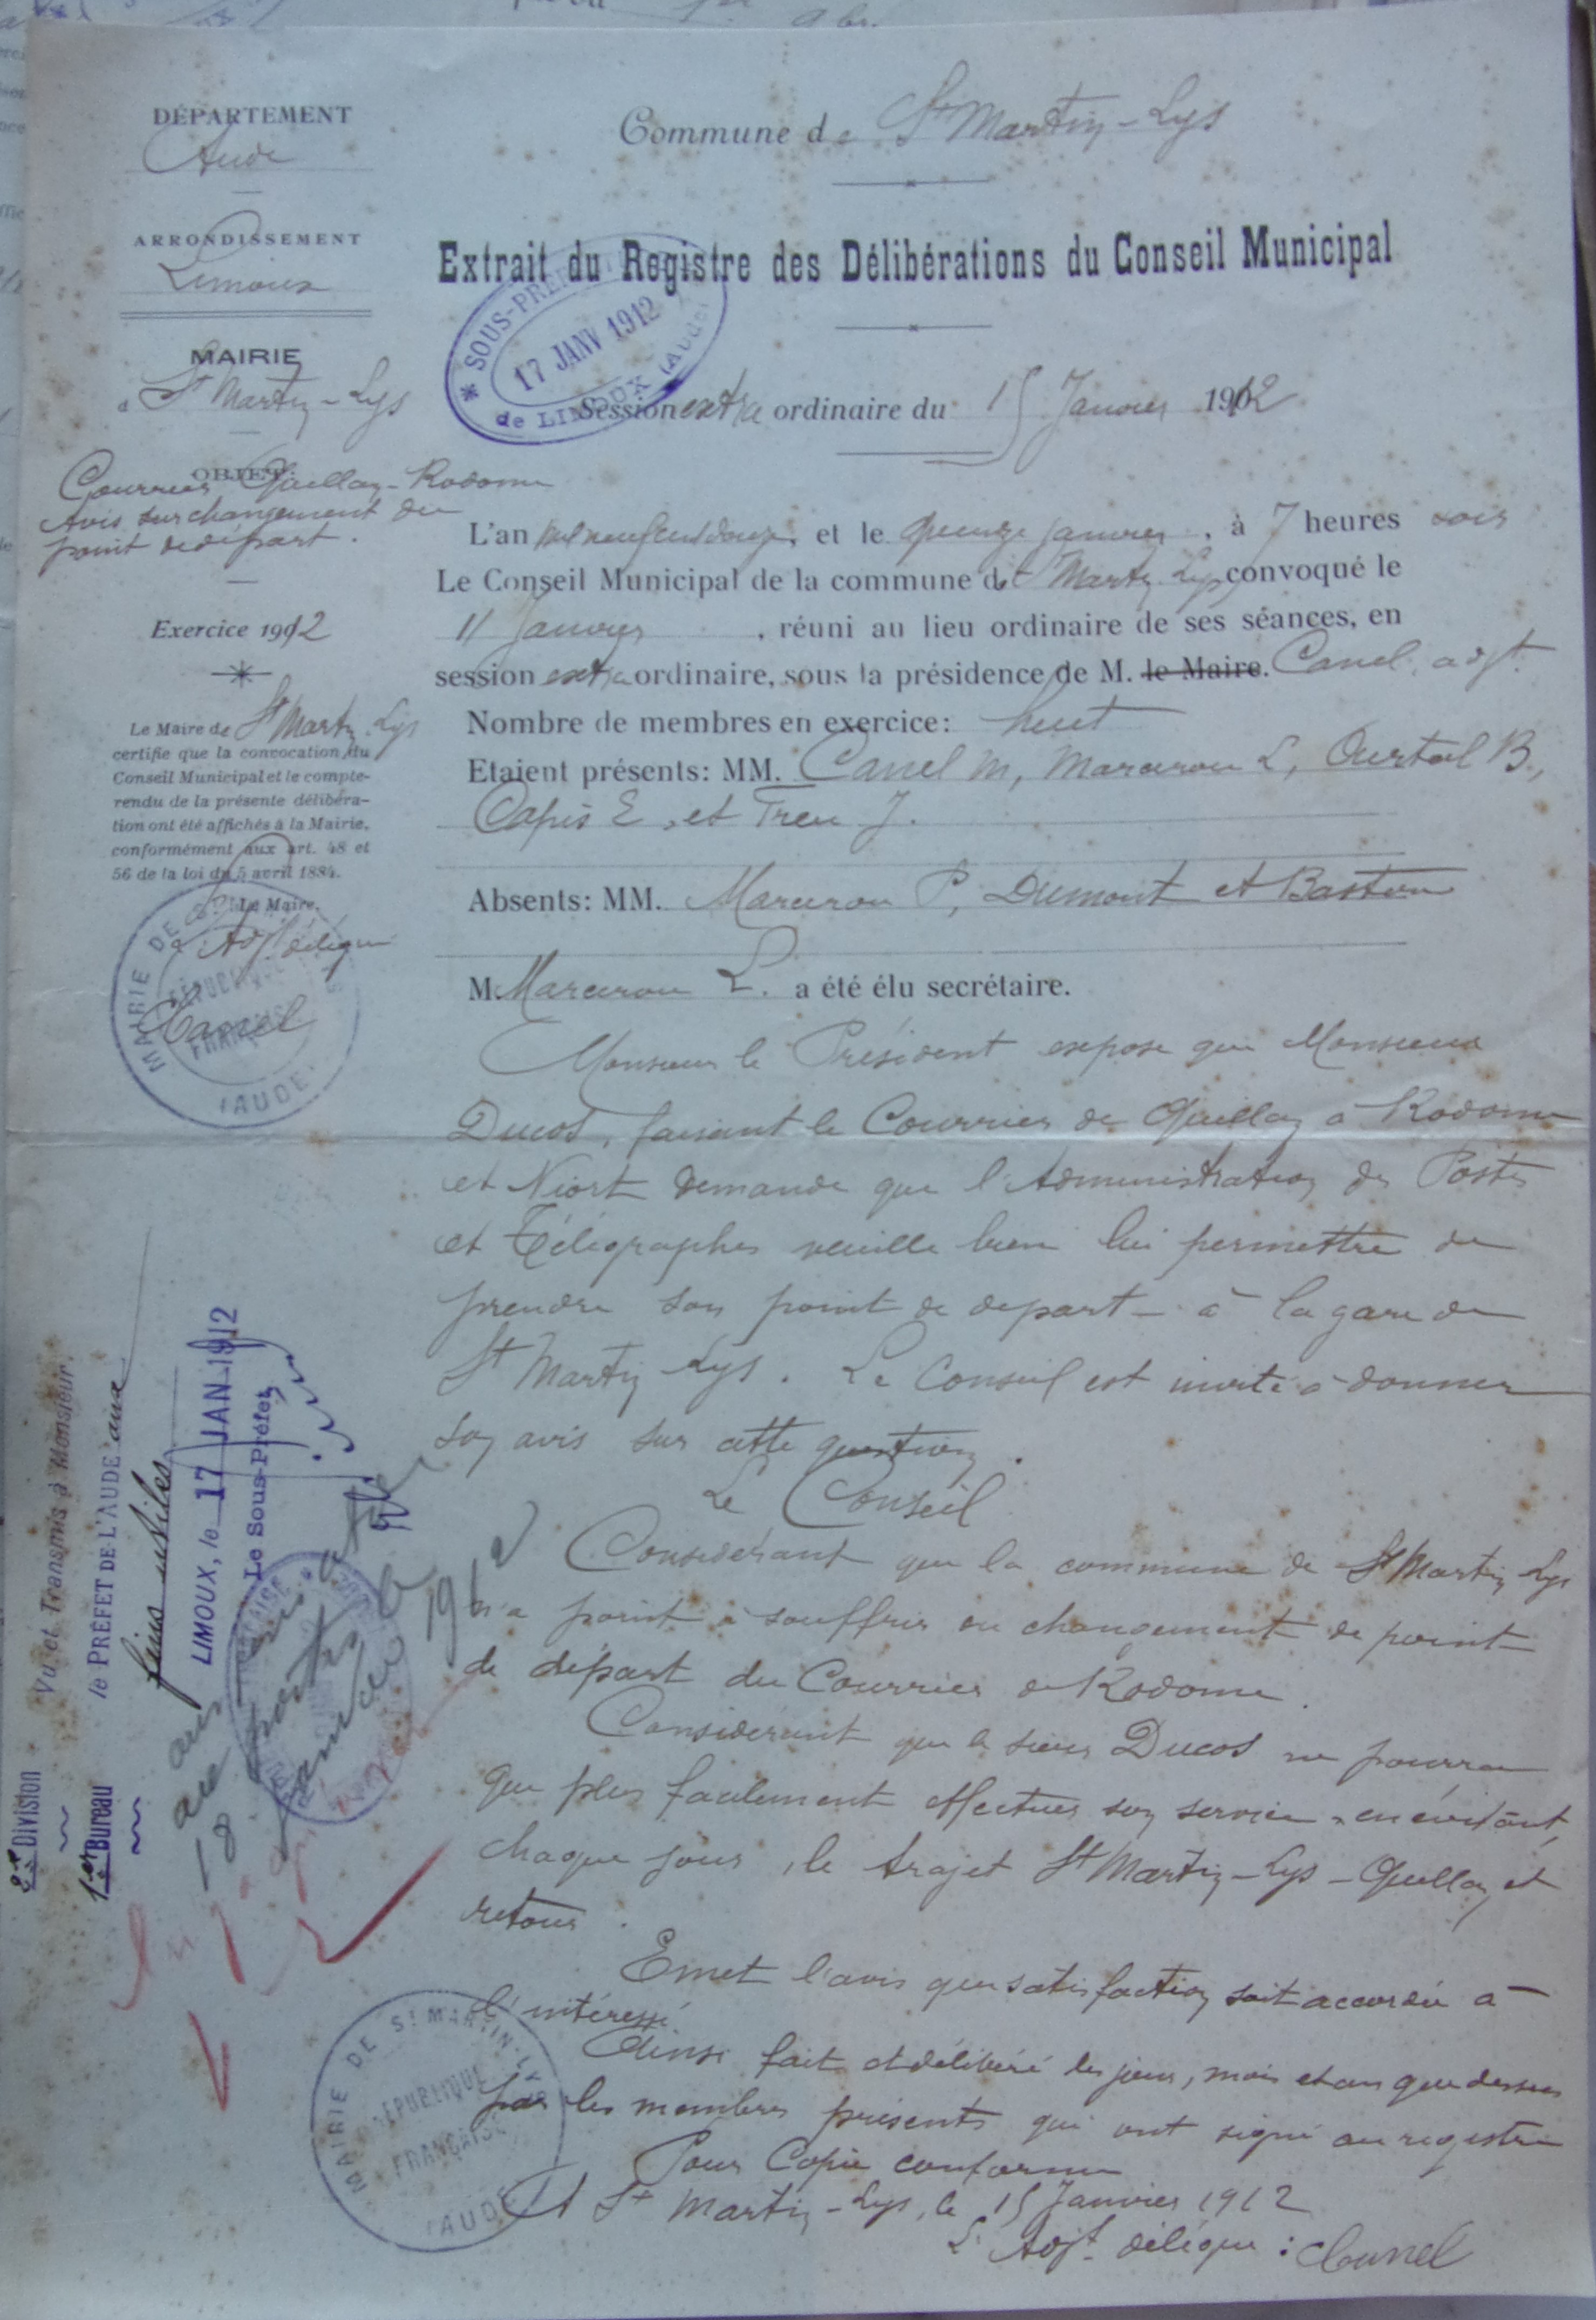 DÉPARTEMENT
Aude
ARRONDISSEMENT
Limoux
MAIRIE
d St Martin-Lys
OBJET:
Courrier Quillan-Rodome
Avis sur changement du
point de départ.
Exercice 1912
Le Maire de St Martin-Lys
certifie que la convocation du
Conseil Municipal et le compte-
rendu de la présente délibéra-
tion ont été affichés à la Mairie,
conformément aux art. 48 et
56 de la loi du 5 avril 1884.
Le Maire,
L'Adjt délégué
Canel
MAIRIE DE St
RÉPUBLIQUE
FRANÇAISE
(AUDE)
Commune de St Martin-Lys
Extrait du Registre des Délibérations du Conseil Municipal
SOUS-PRÉFECTURE
17 JANV 1912
de LIMOUX (AUDE)
Session extra ordinaire du 15 Janvier 1912
L'an mil neuf cent douze, et le quinze janvier, à 7 heures soir
Le Conseil Municipal de la commune de St Martin-Lys, convoqué le
11 Janvier, réuni au lieu ordinaire de ses séances, en
session extra ordinaire, sous la présidence de M. le Maire. Canel, adjt.
Nombre de membres en exercice: huit
Etaient présents: MM. Canel M, Marcerou L, Ourtal B.,
Capis E, et Treu J.
Absents: MM. Marcerou P, Dumont et Bastou
M. Marcerou L. a été élu secrétaire.
Monsieur le Président expose que Monsieur
Ducos, faisant le Courrier de Quillan à Rodome
et Niort demande que l'Administration des Postes
et Télégraphes veuille bien lui permettre de
prendre son point de départ à la gare de
St Martin-Lys. Le Conseil est invité à donner
son avis sur cette question.
Le Conseil
Considérant que la commune de St Martin-Lys
n'a point à souffrir du changement de point
de départ du Courrier de Rodome.
Considérant que le sieur Ducos ne pourra
que plus facilement effectuer son service, en évitant,
chaque jour, le trajet St Martin-Lys-Quillan et
retour.
Emet l'avis que satisfaction soit accordée à
l'intéressé.
Ainsi fait et délibéré les jour, mois et an que dessus
par les membres présents qui ont signé au registre
Pour Copie conforme
A St Martin-Lys, le 15 Janvier 1912
L'Adjt délégué: Canel
MAIRIE DE St MARTIN-LYS
RÉPUBLIQUE
FRANÇAISE
(AUDE)
2e Division
1er Bureau
Vu et Transmis à Monsieur
le PRÉFET DE L'AUDE aux
fins utiles
LIMOUX, le 17 JAN 1912
Le Sous-Préfet,
18 janvier 1912